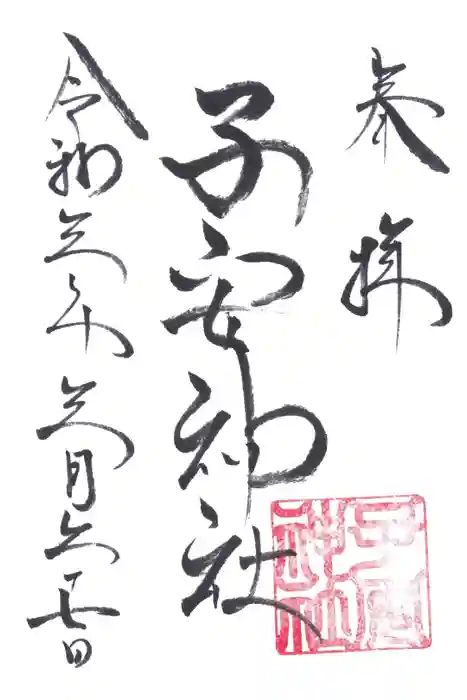 奉拝
子安神社
令和三年三月二十七日
子安
神社